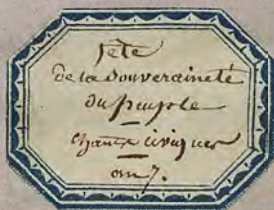 fete
de la Souveraineté
du peuple
chants civiques
an 7.